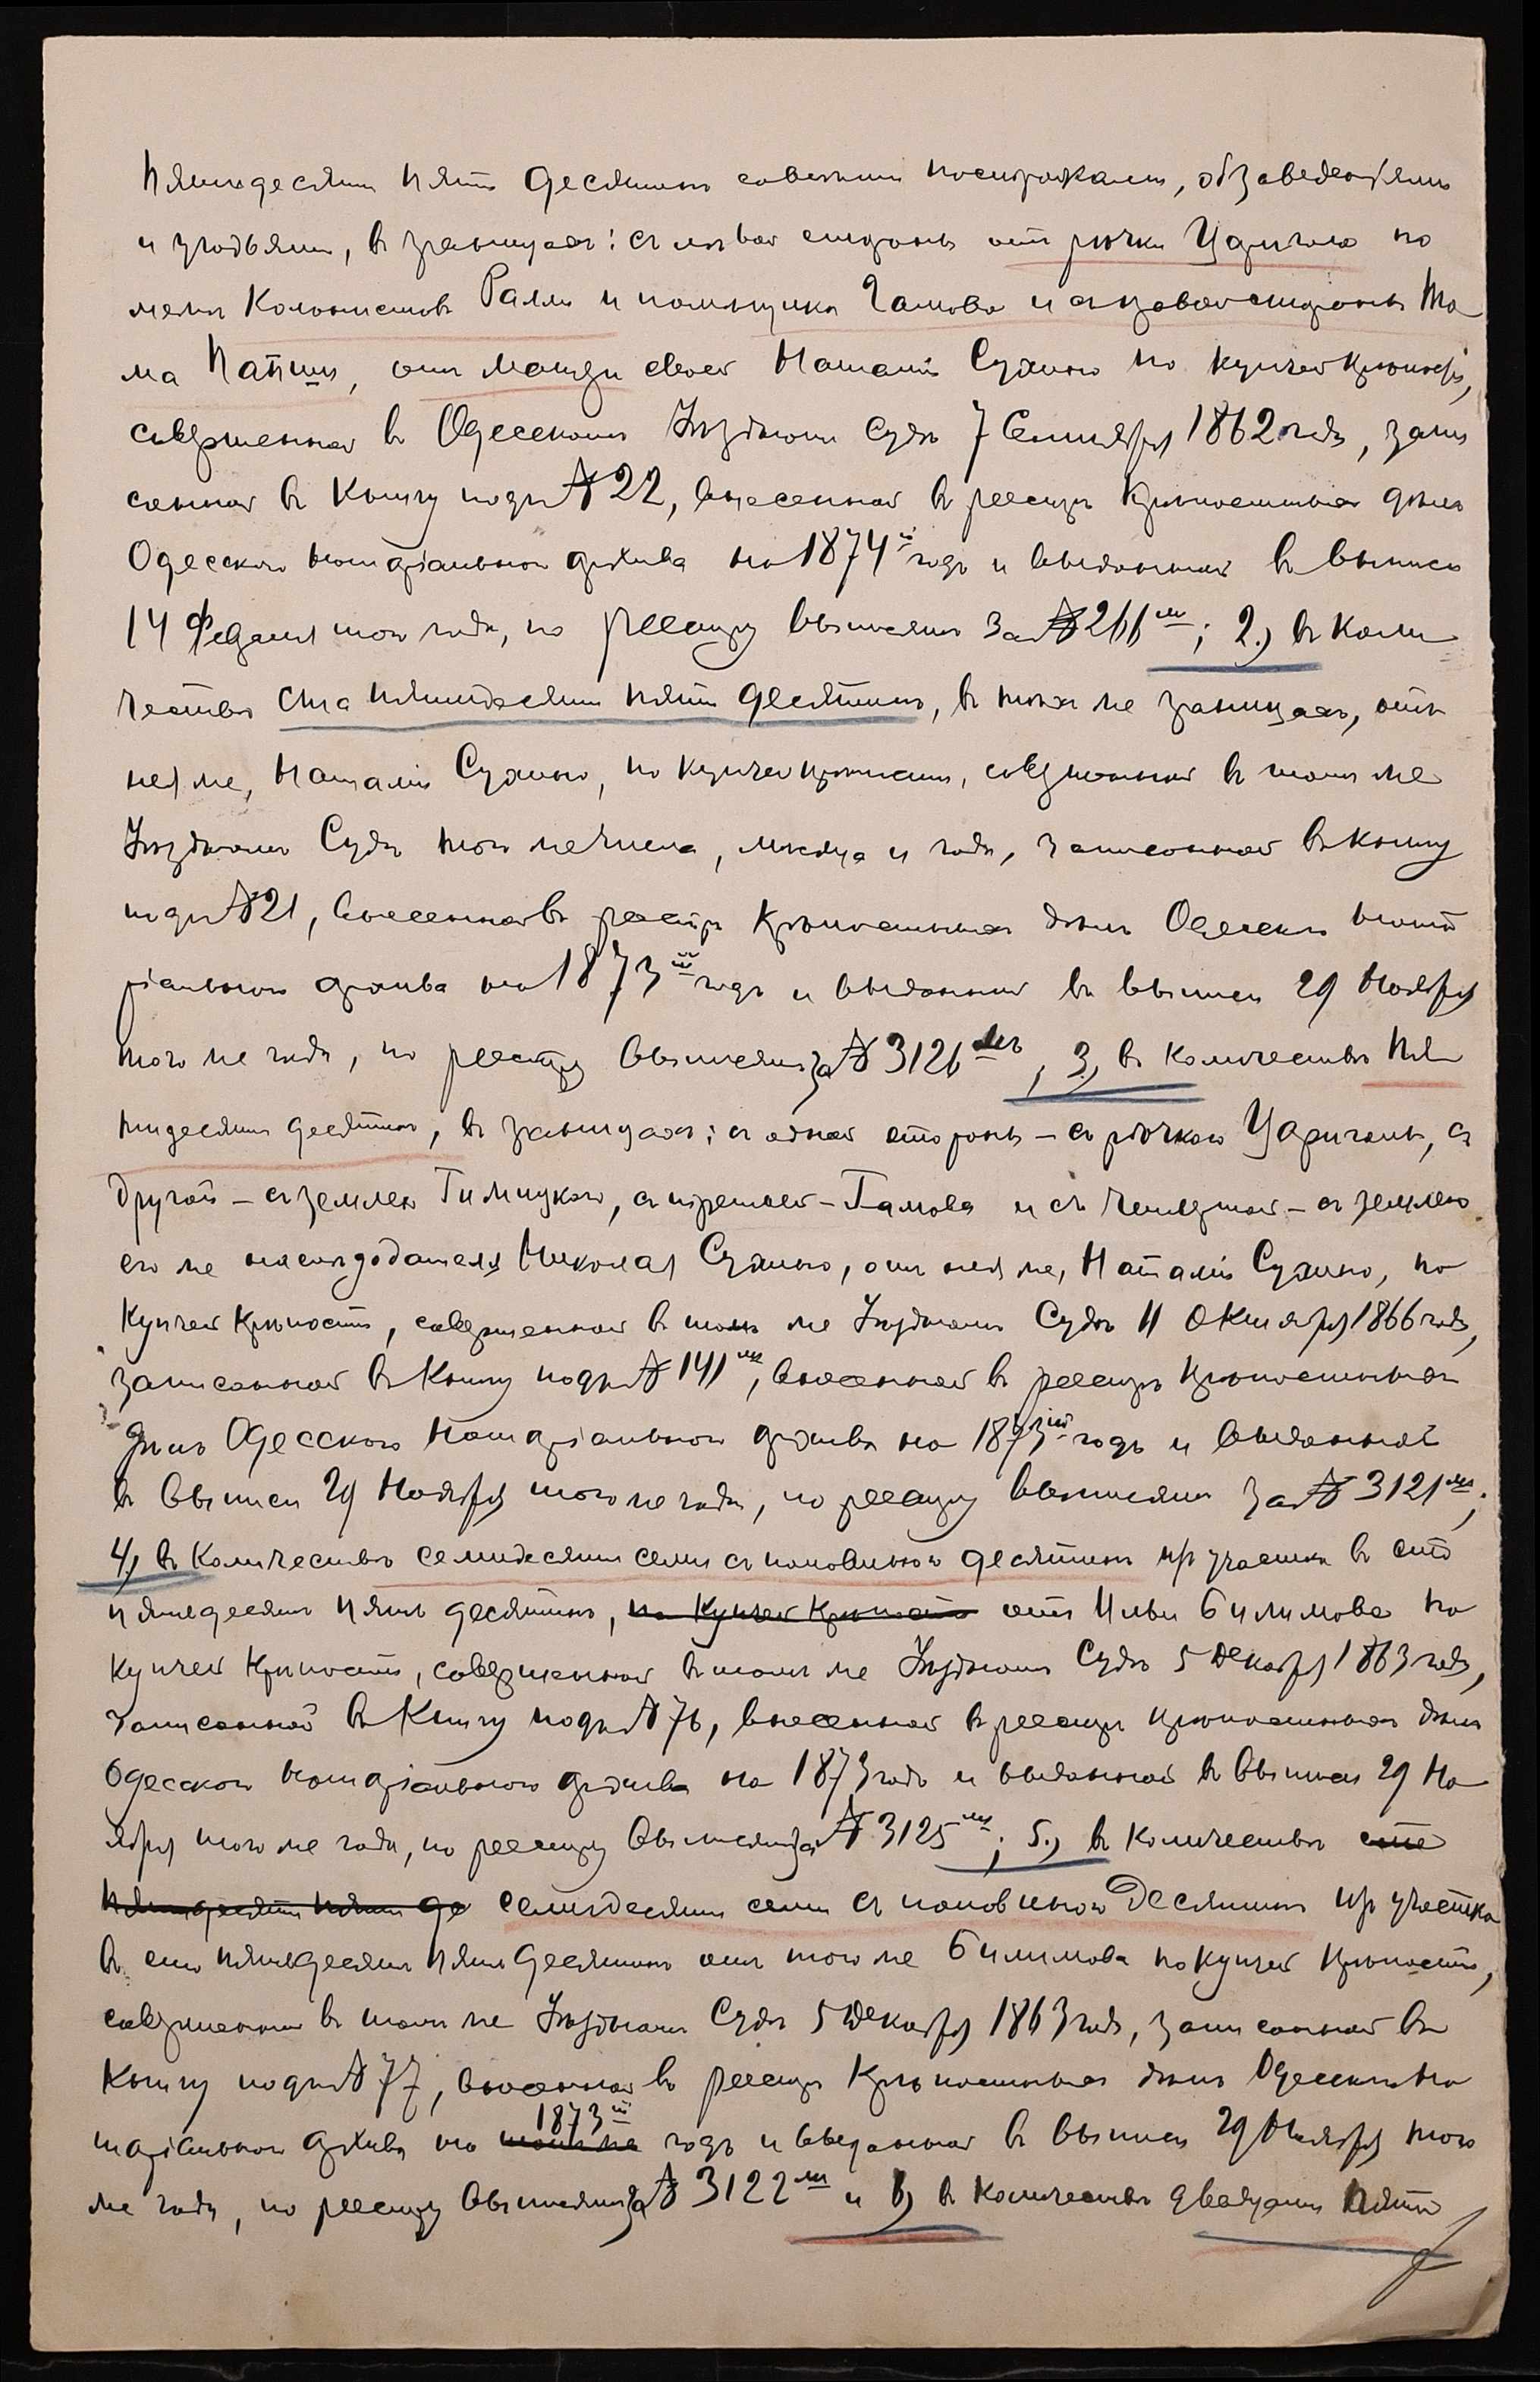 пятьдесятъ пять десятинъ со всѣми постройками, обзаведеніями
и угодьями, въ границахъ: съ лѣвой стороны отъ рѣчки Царичою по
межи Колонистовъ Ралли и помѣщика Гамова и съ правой стороны То
ма Папши, отъ матери своей Наталіи Сухино по купчей крѣпости,
совершенной въ Одесскомъ Уѣздномъ Судѣ 7 Сентября 1862 года, запи
санной въ Книгу подъ № 22, внесенной въ реестръ крѣпостныхъ дѣлъ
Одесскаго нотаріальнаго архива на 1874й годъ и выданной въ выписи
14 Февраля того года, по реестру выписямъ за № 266мъ; 2.) въ коли
чествѣ ста пятидесяти пяти десятинъ, въ тѣхъ же границахъ, отъ
нея же, Наталіи Сухино, по купчей крѣпости, совершенной въ томъ же
Уѣздномъ Судѣ того же числа, мѣсяца и года, записанной въ Книгу
подъ № 21, внесенной въ реестръ крѣпостныхъ дѣлъ Одесскаго нота
ріальнаго архива на 1873й годъ и выданной въ выписи 29 Ноября
того же года, по реестру выписямъ за № 3126мъ, 3.) въ количествѣ пя
тидесяти десятинъ, въ границахъ: съ одной стороны – съ рѣчкою Царичемъ, съ
другой – съ землею Тимицкаго, съ третьей – Гамова и съ четвертой – съ землею
его же наслѣдодателя Николая Сухино, отъ нея же, Наталіи Сухино, по
купчей крѣпости, совершенной въ томъ же Уѣздномъ Судѣ 11 Октября 1866 года,
записанной въ Книгу подъ № 141мъ, внесенной въ реестръ крѣпостныхъ
дѣлъ Одесскаго Нотаріальнаго архива на 1873й годъ и выданной
въ выписи 29 Ноября того же года, по реестру выписямъ за № 3121мъ;
4.) въ количествѣ семидесяти семи съ половиною десятинъ изъ участка въ сто
пятьдесятъ пять десятинъ, по купчей крѣпости отъ Ильи Билимова по
купчей крѣпости, совершенной въ томъ же Уѣздномъ Судѣ 5 Декабря 1863 года,
записанной въ Книгу подъ № 76, внесенной въ реестръ крѣпостныхъ дѣлъ
Одесскаго нотаріальнаго архива на 1873 годъ и выданной въ выписи 29 Но
ября того же года, по реестру выписямъ за № 3125мъ; 5.) въ количествѣ сто
пятидесяти пяти де семидесяти семи съ половиною десятинъ изъ участка
въ сто пятьдесятъ пять десятинъ отъ того же Билимова по купчей крѣпости,
совершенной въ томъ же Уѣздномъ Судѣ 5 Декабря 1863 года, записанной въ
Книгу подъ № 77, внесенной въ реестръ Крѣпостныхъ дѣлъ Одесскаго Но
таріальнаго архива на тотъ же 1873й годъ и выданной въ выписи 29 Ноября того
же года, по реестру выписямъ за № 3122мъ и 6) въ количествѣ двадцати пяти